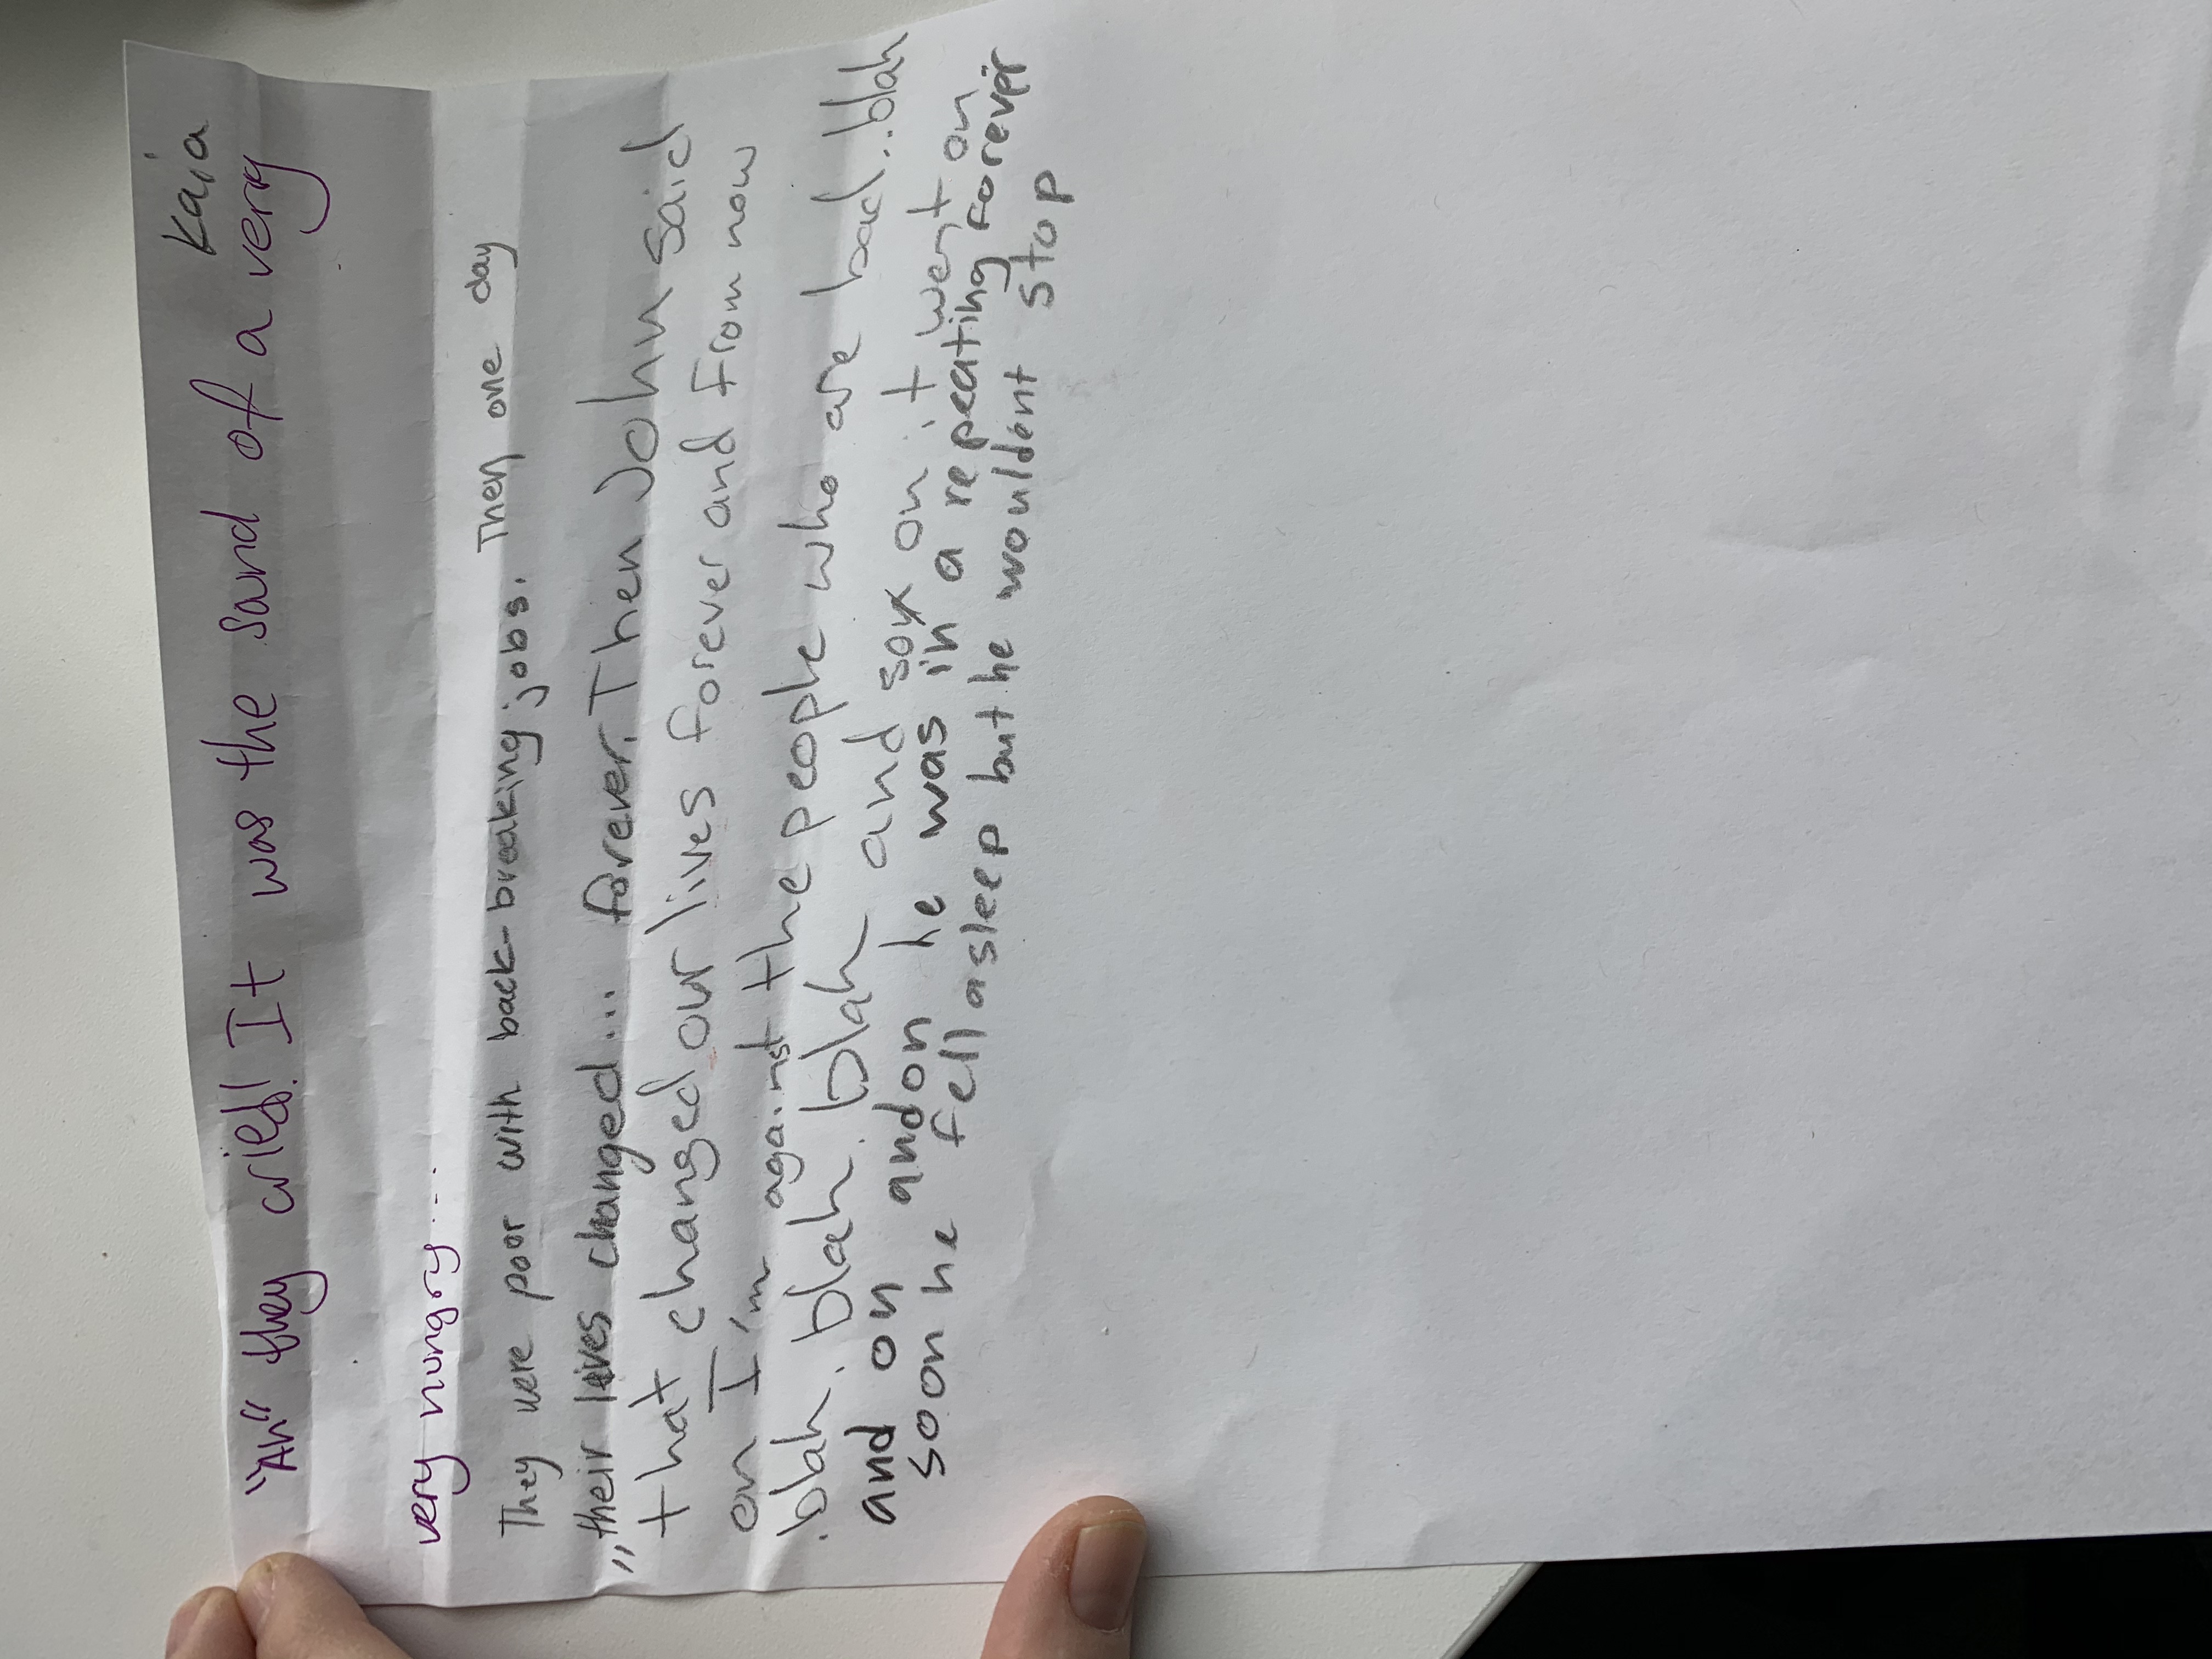 Kaia
"Ah" they cried! It was the sound of a very
very hungry...
They were poor with back-breaking jobs. Then one day
their lives changed... forever. Then John said
„that changed our lives forever and from now
on I'm against the people who are bad..blah
.blah. blah. blah and so on it went on
and on and on he was in a repeating forever
soon he fell asleep but he wouldent stop